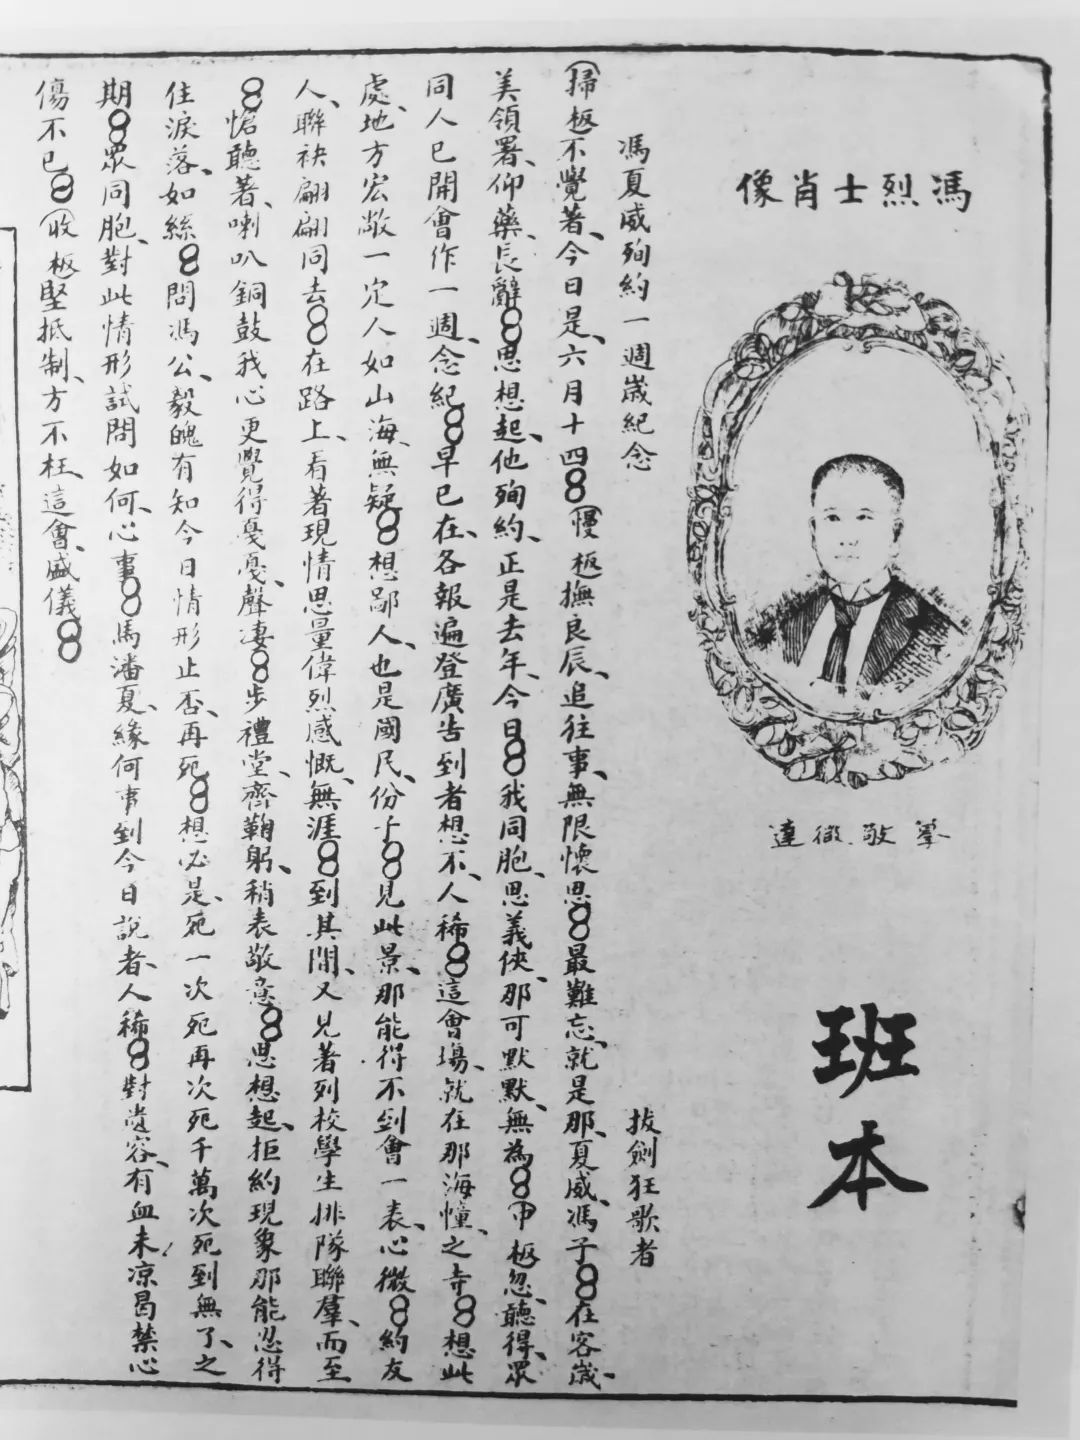 馮烈士肖像
達微敬摹
班本
馮夏威殉約一週歲紀念
拔劍狂歌者
(掃板)不覺著、今日是、六月十四8(慢板)撫良辰、追往事、無限懷思8最難忘、就是那、夏威、馮子8在客歲、
美領署、仰藥、長辭8思想起、他殉約、正是去年、今日8我同胞、思義俠、那可默默、無為8(中板)忽、聽得、眾
同人已開會作一週、念紀8早已在、各報遍登廣告到者想不、人稀8這會場、就在那海幢、之寺8想此
處、地方宏敞一定人如山海、無疑8想鄙人、也是國民、份子8見此景、那能得不到會一表、心微8約友
人、聯袂翩翩同去8在路上、看著現情思量偉烈感慨、無涯8到其間、又見著列校學生排隊聯羣、而至
8愴聽著、喇叭銅鼓我心更覺得憂憂、聲凄8步禮堂、齊鞠躬、稍表敬意8思想起、拒約現象那能忍得
住淚落、如絲8問馮公、毅魄有知今日情形止否、再死8想必是、死一次死再次死千萬次死到無了、之
期8眾同胞、對此情形試問如何、心事8馬潘夏、緣何事到今日說者、人稀8對遺容、有血未涼曷禁心
傷不已8(收板)堅抵制、方不枉、這會、盛儀8